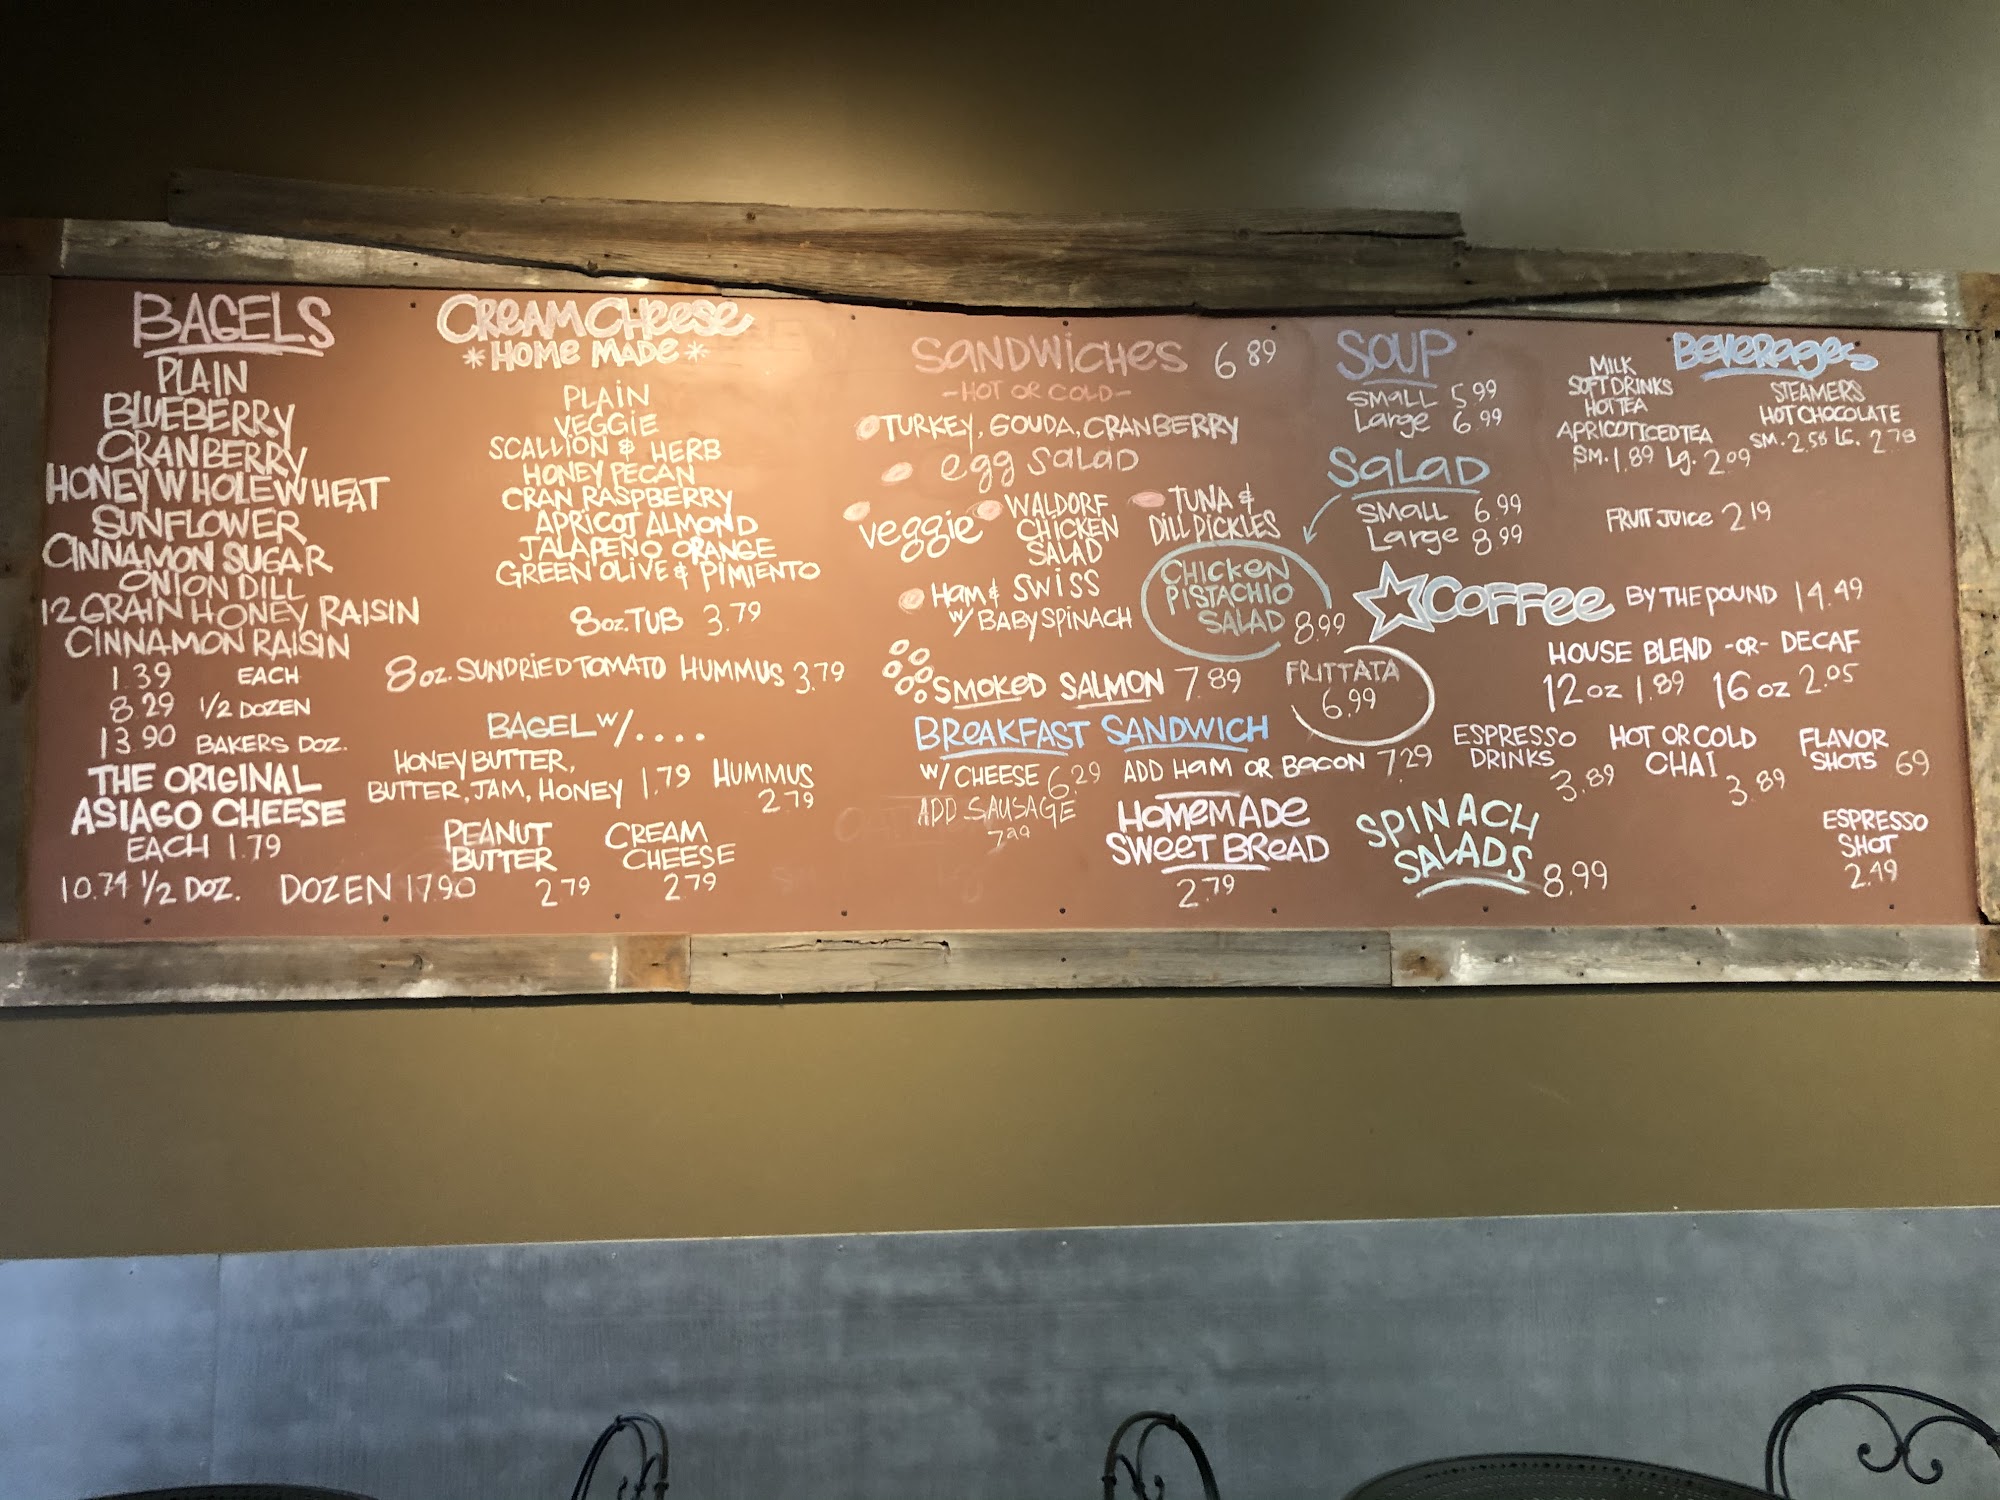 BAGELS
PLAIN
BLUEBERRY
CRANBERRY
HONEY WHOLE WHEAT
SUNFLOWER
CINNAMON SUGAR
ONION DILL
12 GRAIN HONEY RAISIN
CINNAMON RAISIN
1.39 EACH
8.29 1/2 DOZEN
13.90 BAKERS DOZ.
THE ORIGINAL
ASIAGO CHEESE
EACH 1.79
10.74 1/2 DOZ. DOZEN 17.90
CREAM CHEESE
*HOME MADE*
PLAIN
VEGGIE
SCALLION & HERB
HONEY PECAN
CRAN RASPBERRY
APRICOT ALMOND
JALAPEÑO ORANGE
GREEN OLIVE & PIMIENTO
8oz. TUB 3.79
8oz. SUNDRIED TOMATO HUMMUS 3.79
BAGEL W/....
HONEY BUTTER,
BUTTER, JAM, HONEY 1.79
HUMMUS
2.79
PEANUT
BUTTER
2.79
CREAM
CHEESE
2.79
SANDWICHES 6.89
-HOT OR COLD-
TURKEY, GOUDA, CRANBERRY
egg SALAD
veggie
WALDORF
CHICKEN
SALAD
TUNA &
DILL PICKLES
HAM & SWISS
W/ BABY SPINACH
CHICKEN
PISTACHIO
SALAD 8.99
SMOKED SALMON 7.89
FRITTATA
6.99
BREAKFAST SANDWICH
W/ CHEESE 6.29 ADD HAM OR BACON 7.29
ADD SAUSAGE
HOMEMADE
SWEET BREAD
2.79
SOUP
SMALL 5.99
Large 6.99
SALAD
SMALL 6.99
Large 8.99
Beverages
MILK
SOFT DRINKS
HOT TEA
APRICOT ICED TEA
SM. 1.89 Lg. 2.09
STEAMERS
HOT CHOCOLATE
SM. 2.58 LG. 2.78
FRUIT JUICE 2.19
COFFee BY THE POUND 14.49
HOUSE BLEND -OR- DECAF
12 oz 1.89 16 oz 2.05
ESPRESSO
DRINKS
3.89
HOT OR COLD
CHAI
3.89
FLAVOR
SHOTS 69
SPINACH
SALADS 8.99
ESPRESSO
SHOT
2.49